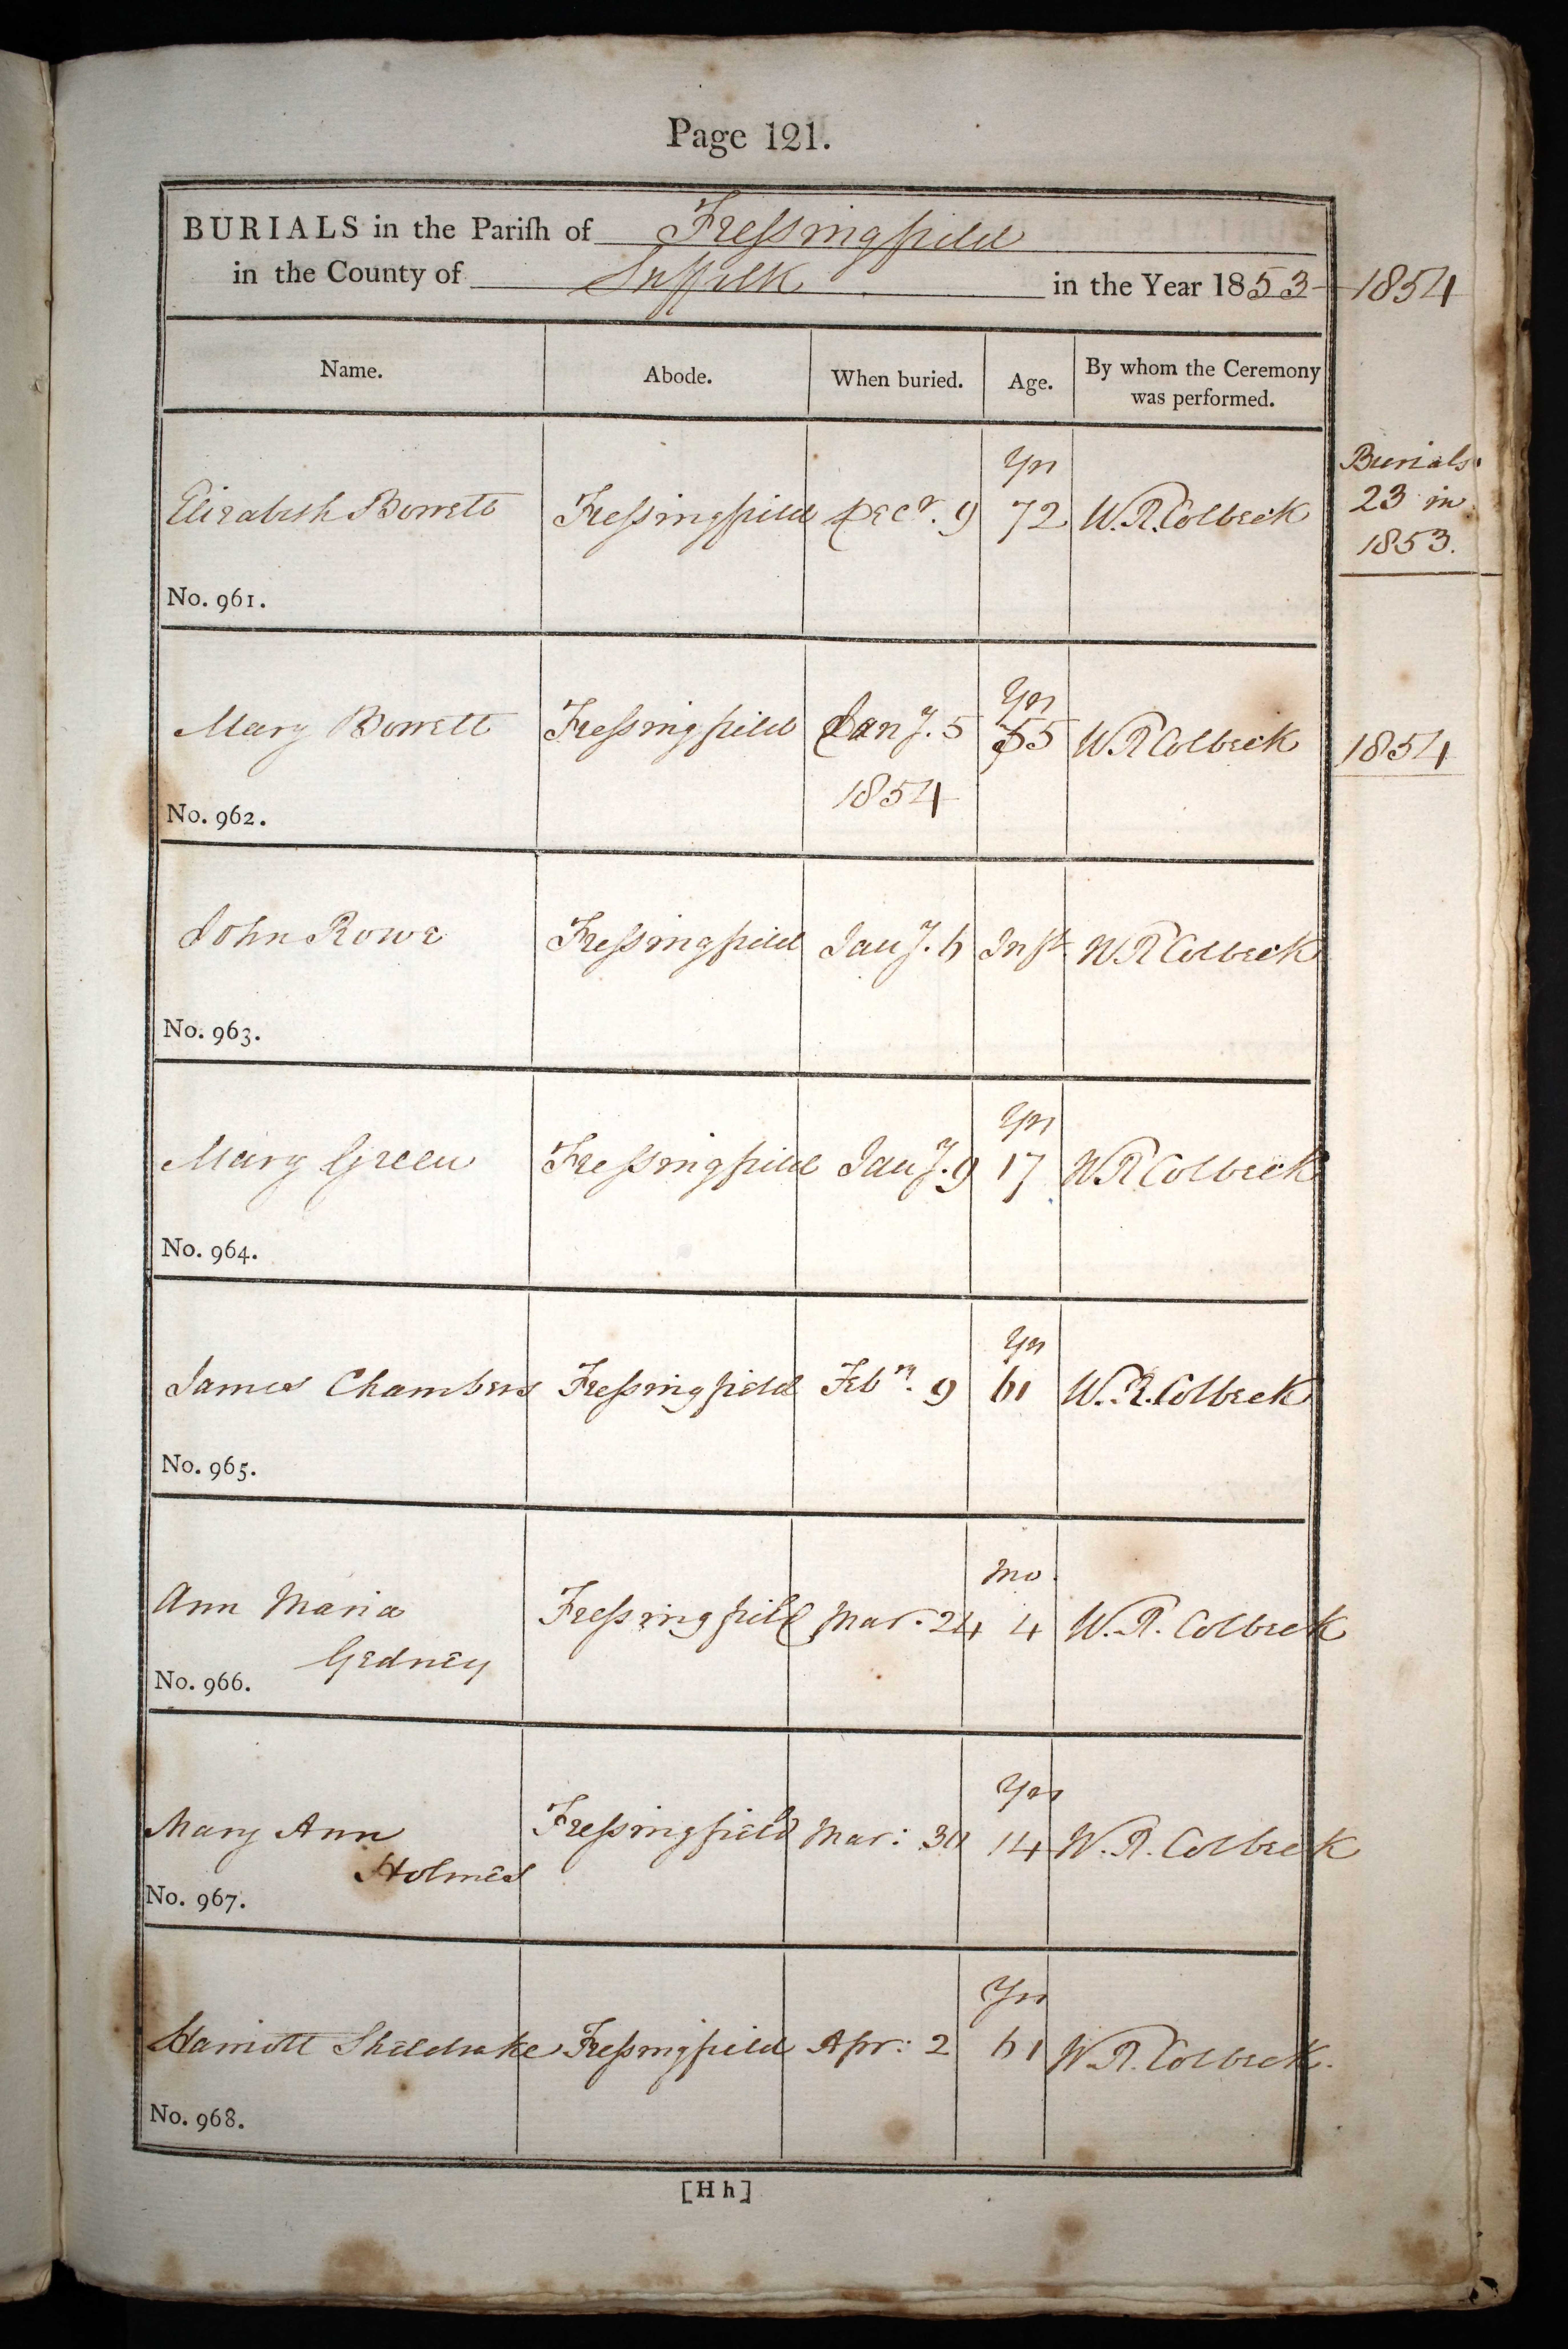 Page 121.
BURIALS in the Pariſh of Freſsingfield
in the County of Suffolk in the Year 1853 - 1854
Name. Abode. When buried. Age. By whom the Ceremony
was performed.
Yrs
Elizabeth Borrett Freſsingfield Decr. 9 72 W.R. Colbeck
Burials
23 in
1853.
No. 961.
Yrs
Mary Borrett Freſsingfield Jany. 5 55 W R Colbeck 1854
1854
No. 962.
John Rowe Freſsingfield Jany. 6 Inft W R Colbeck
No. 963.
Yrs
Mary Green Freſsingfield Jany. 9 17 W R Colbeck
No. 964.
Yrs
James Chambers Freſsingfield Feby. 9 61 W. R. Colbeck
No. 965.
Mo.
Ann Maria Freſsingfield Mar. 24 4 W. R. Colbeck
Gedney
No. 966.
Yrs
Mary Ann Freſsingfield Mar: 30 14 W. R. Colbeck
Holmes
No. 967.
Yrs
Harriott Sheldrake Freſsingfield Apr: 2 61 W. R. Colbeck.
No. 968.
[H h]